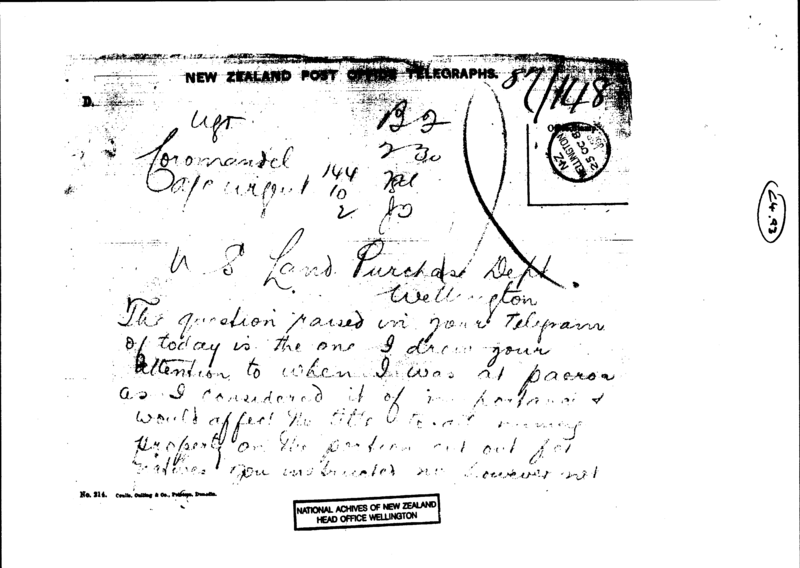 NEW ZEALAND POST OFFICE TELEGRAPHS.
87/148
D.
Ugt
Coromandel
Urgent
144
10
2
WELLINGTON
N.Z.
25 OC 8
U S Land Purchase Dept
Wellington
The question raised in your Telegram
of today is the one I drew your
attention to when I was at paeroa
as I considered it of importance &
would affect the title to all mining
property on the portion cut out for
natives you instructed me however not
No. 214.
NATIONAL ACHIVES OF NEW ZEALAND
HEAD OFFICE WELLINGTON